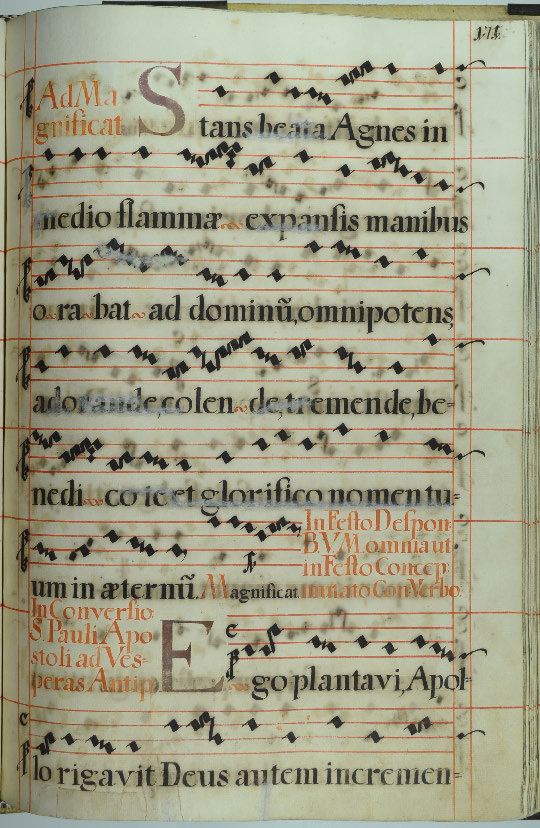 171
Ad Ma
gnificat
Stans beata Agnes in
medio flammæ expansis manibus
orabat ad dominũ, omnipotens,
adorande, colende, tremende, be=
nedicote et glorifico nomen tu=
um in æternũ. Magnificat
In Festo Despon:
B.V.M. omnia ut
in Festo Concep:
mutato Con Verbo
In Conversio:
S. Pauli Apo
stoli ad Ves=
peras Antip
Ego plantavi, Apol=
lo rigavit Deus autem incremen=